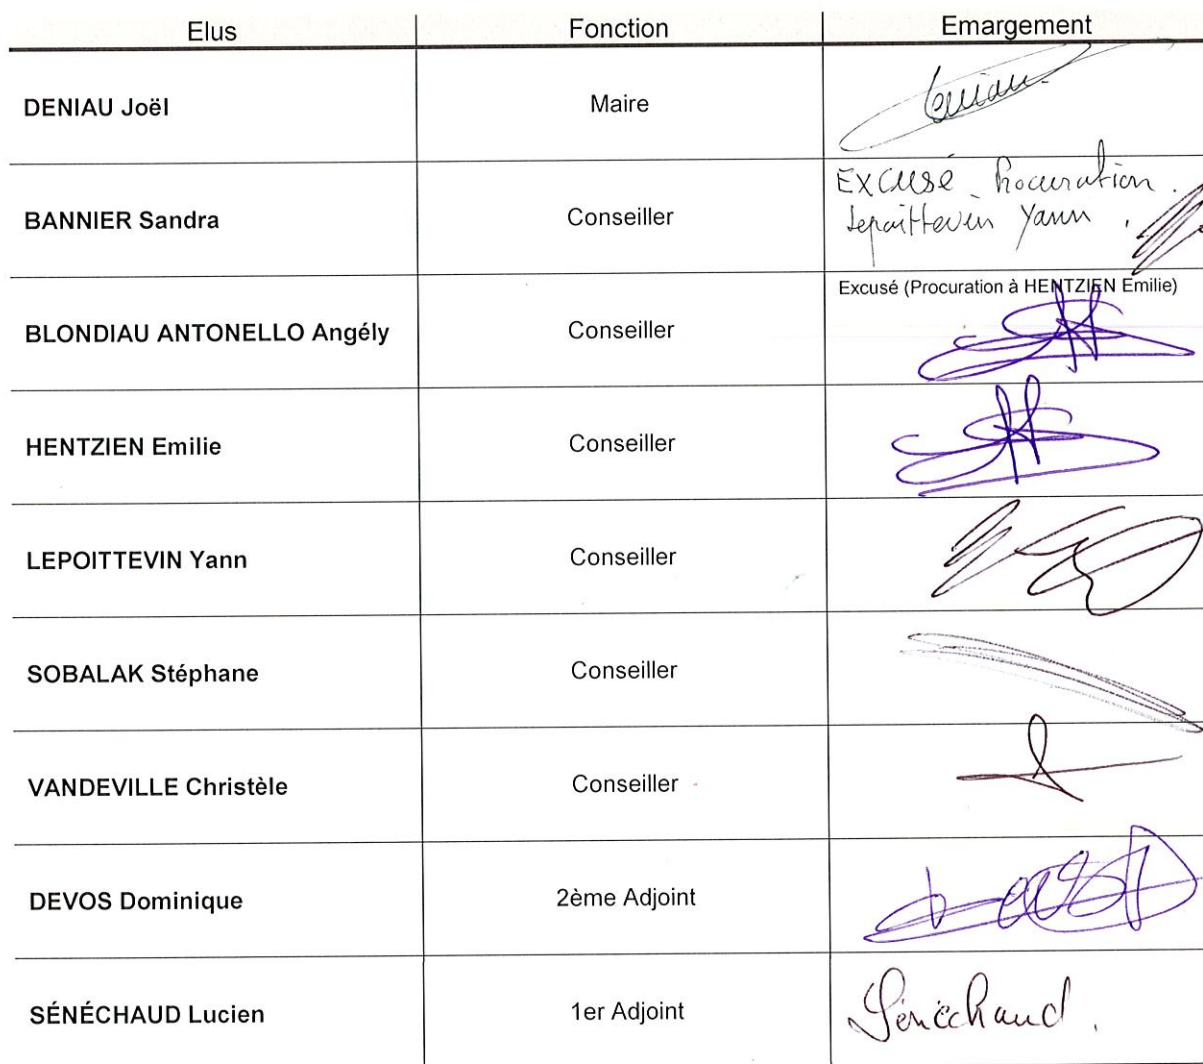 Elus Fonction Emargement
DENIAU Joël Maire
BANNIER Sandra Conseiller
Excusé Procuration.
Lepoittevin Yann.
BLONDIAU ANTONELLO Angély Conseiller
Excusé (Procuration à HENTZIEN Emilie)
HENTZIEN Emilie Conseiller
LEPOITTEVIN Yann Conseiller
SOBALAK Stéphane Conseiller
VANDEVILLE Christèle Conseiller
DEVOS Dominique 2ème Adjoint
SÉNÉCHAUD Lucien 1er Adjoint
Sénéchaud.